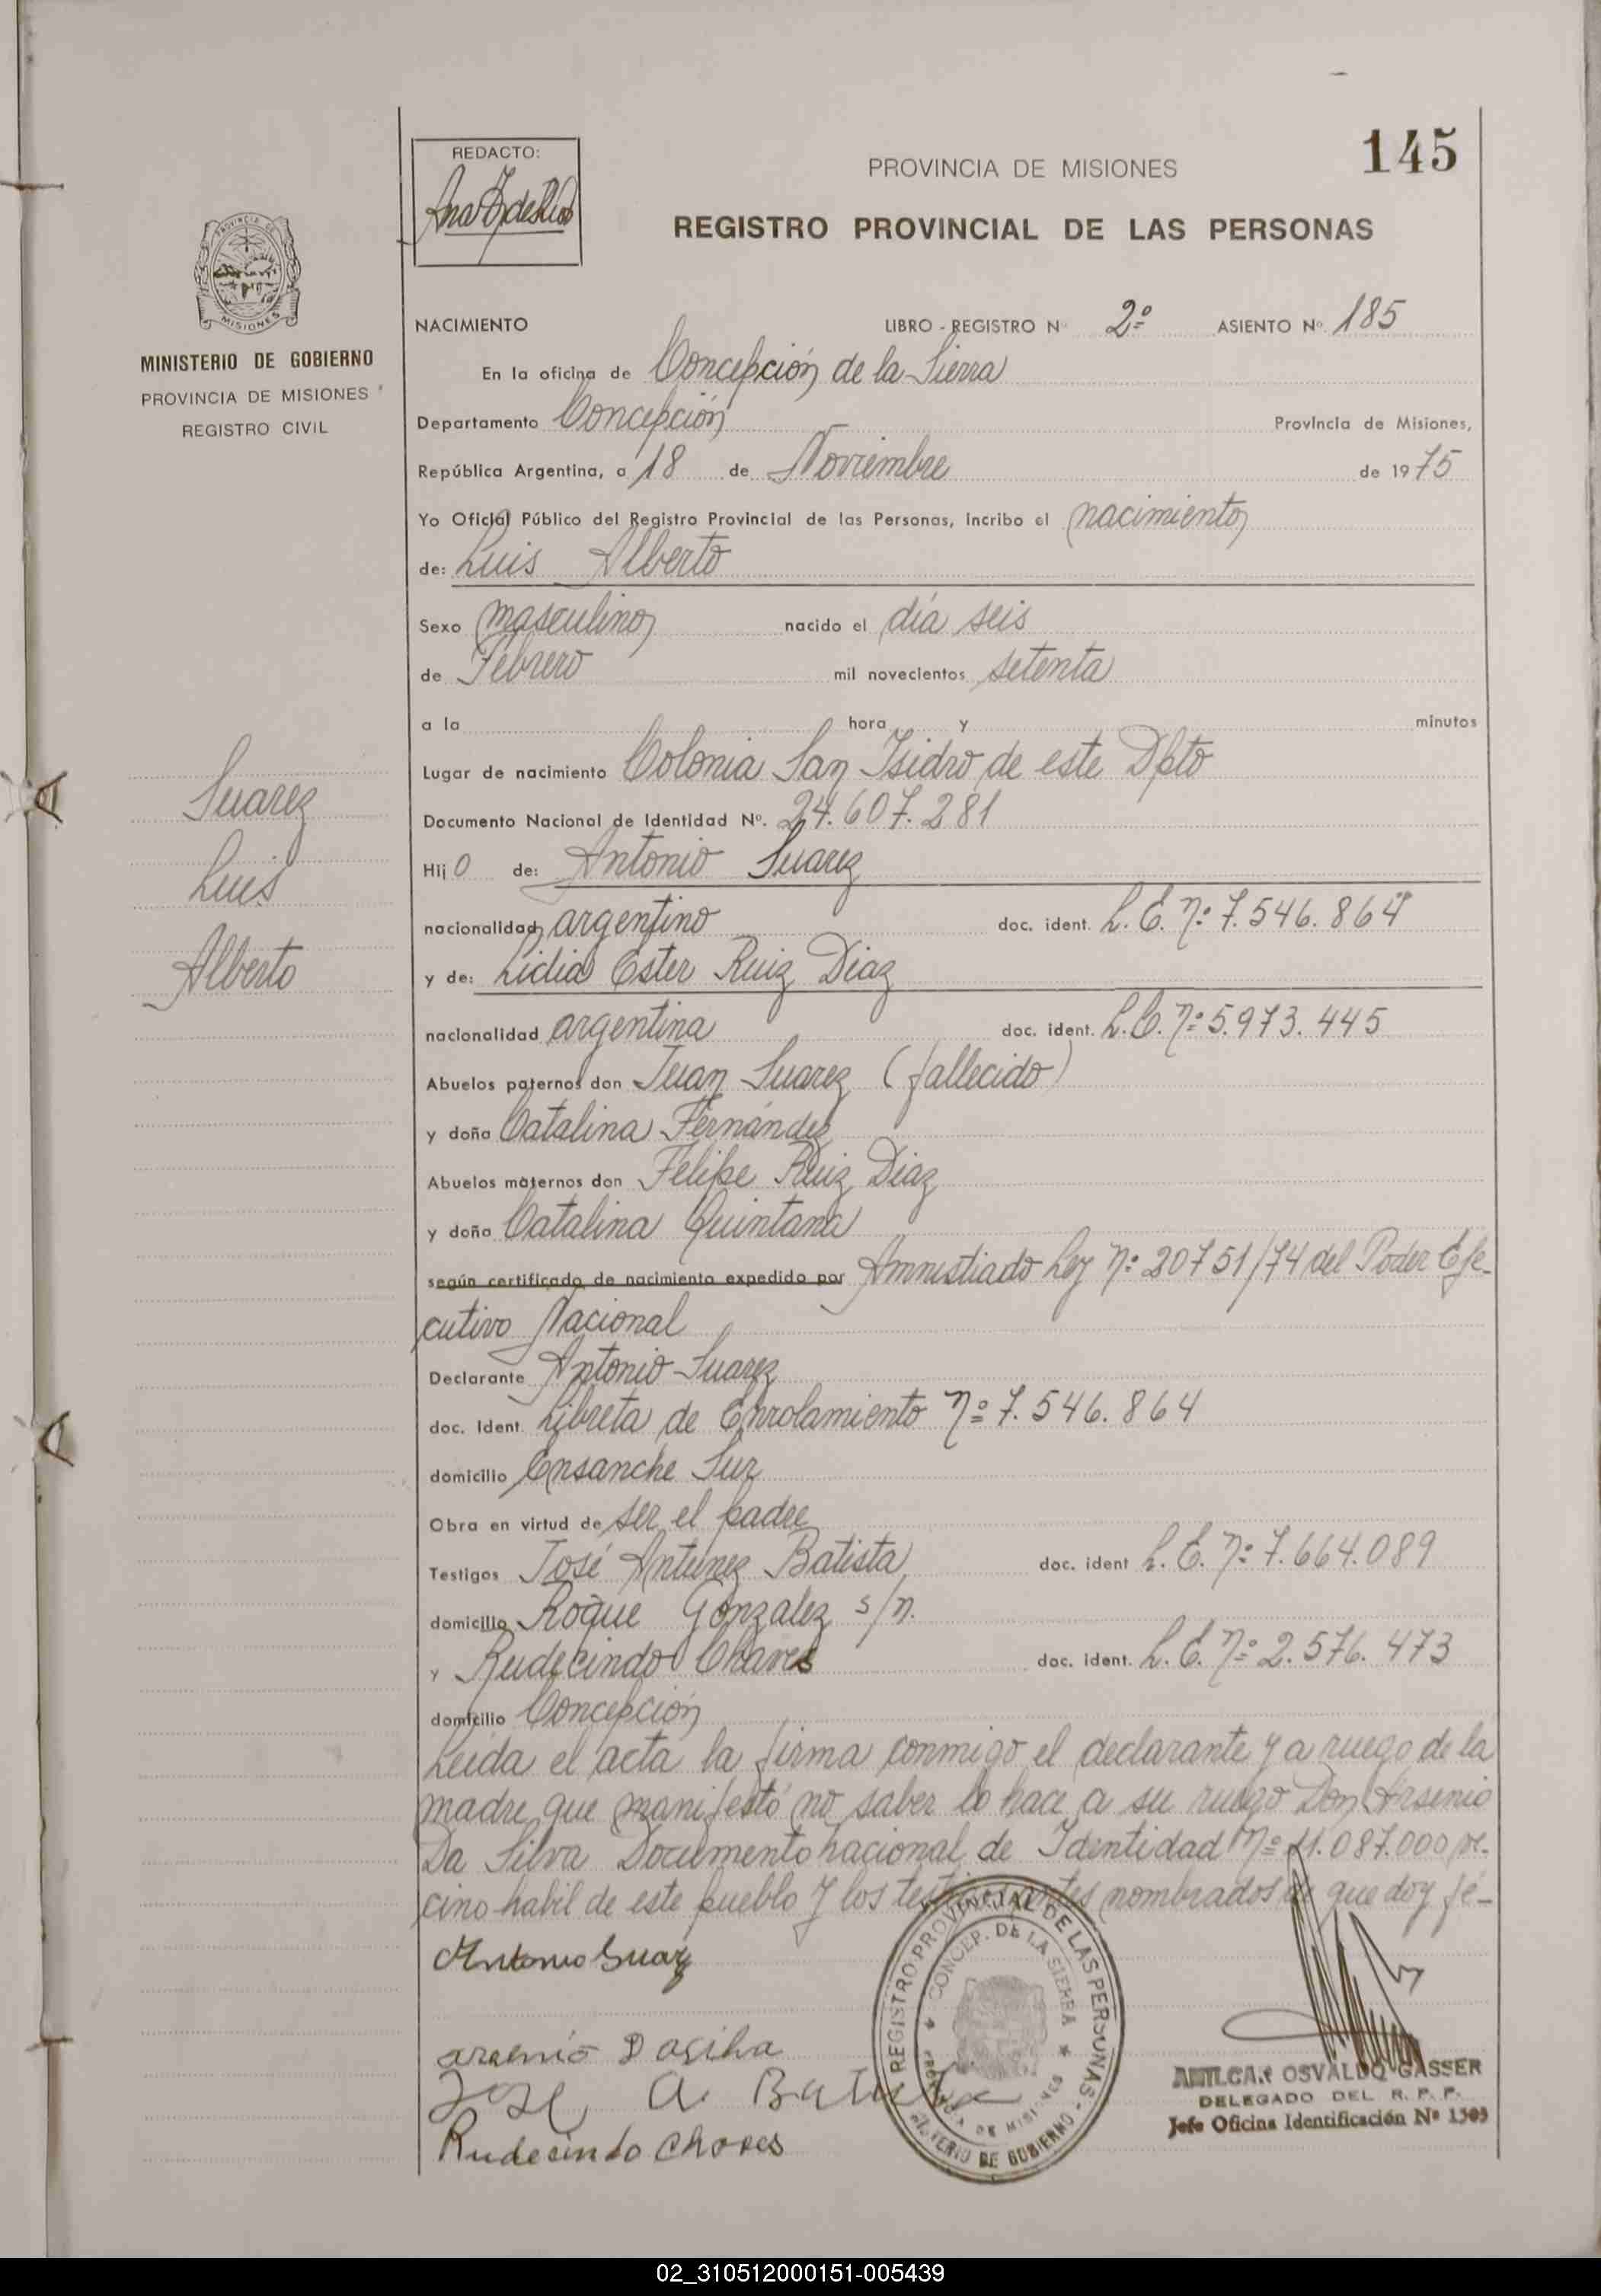 145
REDACTO:
PROVINCIA DE MISIONES
REGISTRO PROVINCIAL DE LAS PERSONAS
PROVINCIA DE
MISIONES
MINISTERIO DE GOBIERNO
PROVINCIA DE MISIONES
REGISTRO CIVIL
NACIMIENTO LIBRO - REGISTRO Nº 2º ASIENTO Nº 185
En la oficina de Concepción de la Sierra
Departamento Concepción Provincia de Misiones,
República Argentina, a 18 de Noviembre de 1975
Yo Oficial Público del Registro Provincial de las Personas, incribo el nacimiento
de: Luis Alberto
Sexo masculino nacido el día seis
de Febrero mil novecientos setenta
a la hora y minutos
Lugar de nacimiento Colonia San Isidro de este Dpto
Suarez
Luis
Alberto
Documento Nacional de Identidad Nº. 24.607.281
Hijo de: Antonio Suarez
nacionalidad argentino doc. ident. L. E. nº 7.546.864
y de: Lidia Ester Ruiz Diaz
nacionalidad argentina doc. ident. L. C. nº 5.973.445
Abuelos paternos don Juan Suarez (fallecido)
y doña Catalina Fernández
Abuelos maternos don Felipe Ruiz Diaz
y doña Catalina Quintana
según certificado de nacimiento expedido por Amnistiado Ley nº 20751/74 del Poder Eje-
cutivo Nacional
Declarante Antonio Suarez
doc. Ident. Libreta de Enrolamiento nº 7.546.864
domicilio Ensanche Sur
Obra en virtud de ser el padre
Testigos José Antunez Batista doc. ident L. E. nº 7.664.089
domicilio Roque Gonzalez s/n.
y Rudecindo Chaves doc. ident. L. E. nº 2.576.473
domicilio Concepción
Leida el acta la firma conmigo el declarante y a ruego de la
madre que manifestó no saber lo hace a su ruego Don Arsenio
Da Silva Documento nacional de Identidad nº 11.087.000 ve-
cino habil de este pueblo y los testigos antes nombrados de que doy fé-
Antonio Suarez
arsenio Dasilva
Jose A. Batista
Rudecindo Chaves
REGISTRO PROVINCIAL DE LAS PERSONAS - MINISTERIO DE GOBIERNO
CONCEP. DE LA SIERRA
PROVINCIA DE MISIONES
AMILCAR OSVALDO GASSER
DELEGADO DEL R. P. P.
Jefe Oficina Identificación Nº 1305
02_310512000151-005439